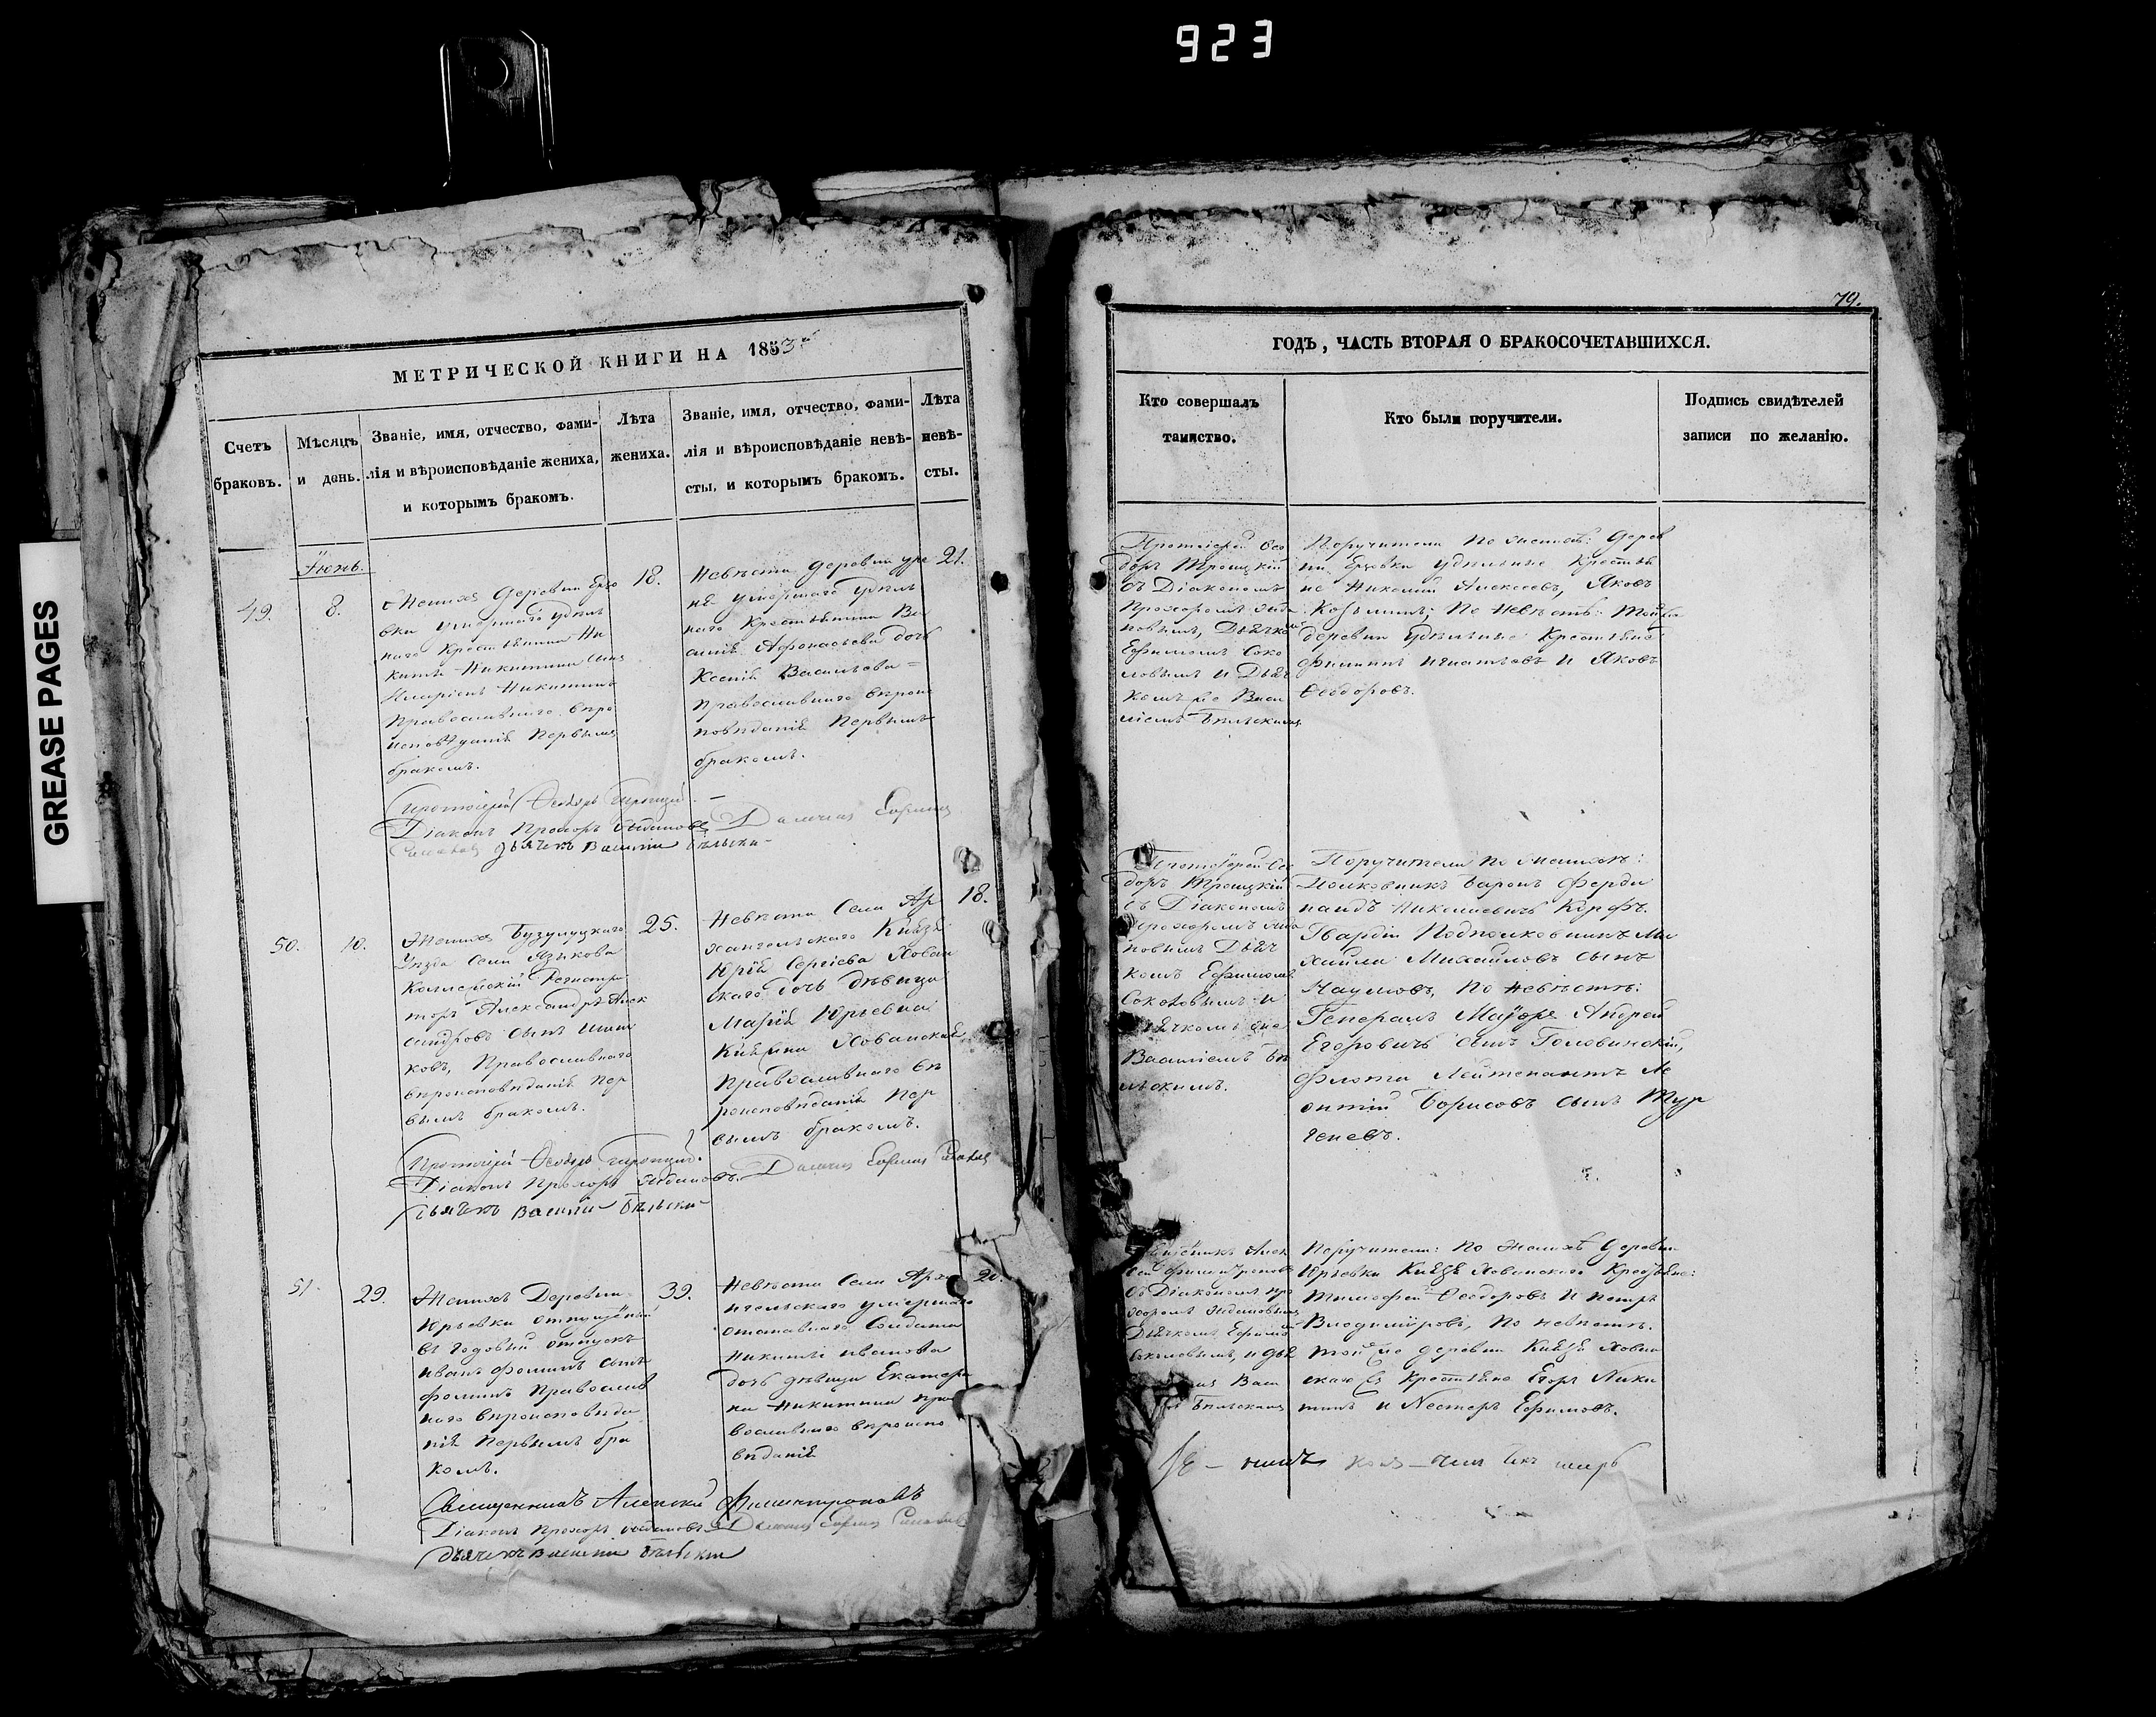 923
GREASE PAGES
МЕТРИЧЕСКОЙ КНИГИ НА 1853й
Счетъ браковъ.
Мѣсяцъ и день.
Званіе, имя, отчество, фами-
лія и вѣроисповѣданіе жениха,
и которымъ бракомъ.
Лѣта
жениха.
Званіе, имя, отчество, фами-
лія и вѣроисповѣданіе невѣ-
сты, и которымъ бракомъ.
Лѣта
невѣ-
сты.
Іюнь.
49.
8.
Женихъ деревни
вки умершаго удѣль
наго Крестьянина Ни
киты Никитина сынъ
Иларіонъ Никитинъ
православнаго вѣро
исповѣданія первымъ
бракомъ.
18.
Невѣста деревни
умершаго удѣль
наго Крестьянина Ва
силія Афонасьева дочь
Ксенія Васильева =
православнаго вѣроис
повѣданія первымъ
бракомъ.
21.
Протоіерей Ѳеодоръ Троицкій.
Діаконъ Прохоръ Ждановъ Дьячекъ Ефимъ
Соколовъ дьячекъ Василій Бѣльски
50.
10.
Женихъ Бузулуцкаго
Уѣзда Села Языкова
Коллежскій Регистра
торъ Александръ Алек
сандровъ сынъ
ковъ, Православнаго
вѣроисповѣданія пер
вымъ бракомъ.
25.
Невѣста Села Ар
хангельскаго Князя
Юрія Сергіева Хован
скаго дочь дѣвица
Марія Юрьевна
Княжна Хованская
православнаго вѣ
роисповѣданія пер
вымъ бракомъ.
18.
Протоіерей Ѳеодоръ Троицкій.
Діаконъ Прохоръ Ждановъ. Дьячекъ Ефимъ Соколовъ
дьячекъ Василій Бѣльски
51.
29.
Женихъ Деревни
Юрьевки отпущенный
въ годовый отпускъ
Иванъ Фоминъ сынъ
Фоминъ православ
наго вѣроисповѣда
нія первымъ бра
комъ.
39.
Невѣста Села Арха
нгельскаго умершаго
отставнаго Солдата
Никиты Иванова
дочь дѣвица Екатери
на Никитина пра
вославнаго вѣроиспо
вѣданія
20.
Священникъ Алексѣй Филантроповъ
Діаконъ Прохоръ Ждановъ Дьячекъ Ефимъ Соколовъ
дьячекъ Василій Бѣльски
79.
ГОДЪ, ЧАСТЬ ВТОРАЯ О БРАКОСОЧЕТАВШИХСЯ.
Кто совершалъ
таинство.
Кто были поручители.
Подпись свидѣтелей
записи по желанію.
Протоіерей Ѳео
доръ Троицкій
съ Діакономъ
Прохоромъ Жда
новымъ, Дьячко
Ефимомъ Соко
ловымъ и Дьяч
комъ же Васи
ліемъ Бѣльскимъ
Поручители по женихѣ: дерев
ни удѣльные Крестья
не Николай Алексеевъ, Яковъ
Козьминъ; по невѣстѣ: той же
деревни удѣльные Крестьяне
Филиппъ Игнатьевъ и Яковъ
Ѳеодоровъ.
Протоіерей Ѳео
доръ Троицкій
съ Діакономъ
Прохоромъ Жда
новымъ Дьяч
комъ Ефимомъ
Соколовымъ и
дьячкомъ же
Василіемъ Бѣ
льскимъ.
Поручители по женихѣ:
Полковникъ Баронъ Ферди
нандъ Николаевичъ Корфъ.
Гвардіи Подполковникъ Ми
хайла Михайловъ сынъ
Наумовъ, по невѣстѣ:
Генералъ Маіоръ Андрей
Егоровичь сынъ Головинскій,
Флота Лейтенантъ Ле
онтій Борисовъ сынъ Тур
геневъ.
Священникъ Алек
сѣй Филантроповъ
съ Діакономъ Про
хоромъ Ждановымъ
Дьячкомъ Ефимомъ
Соколовымъ, и дья
Васи
Бѣльскимъ
Поручители: по женихѣ деревни
Юрьевки Князя Хованскаго Крестьяне:
Тимофей Ѳеодоровъ и Петръ
Владиміровъ, по невѣстѣ.
той же деревни Князя Хован
скаго же Крестьяне Егоръ Ники
тинъ и Нестеръ Ефимовъ.